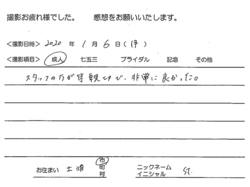 撮影お疲れ様でした。 感想をお願いいたします。
<撮影日時> 2020年 1月 6日( )
<撮影項目> 成人 七五三 ブライダル 記念 その他
スタッフの方が皆親切で、非常に良かった。
お住まい 土浦 市 町 村 ニックネーム イニシャル